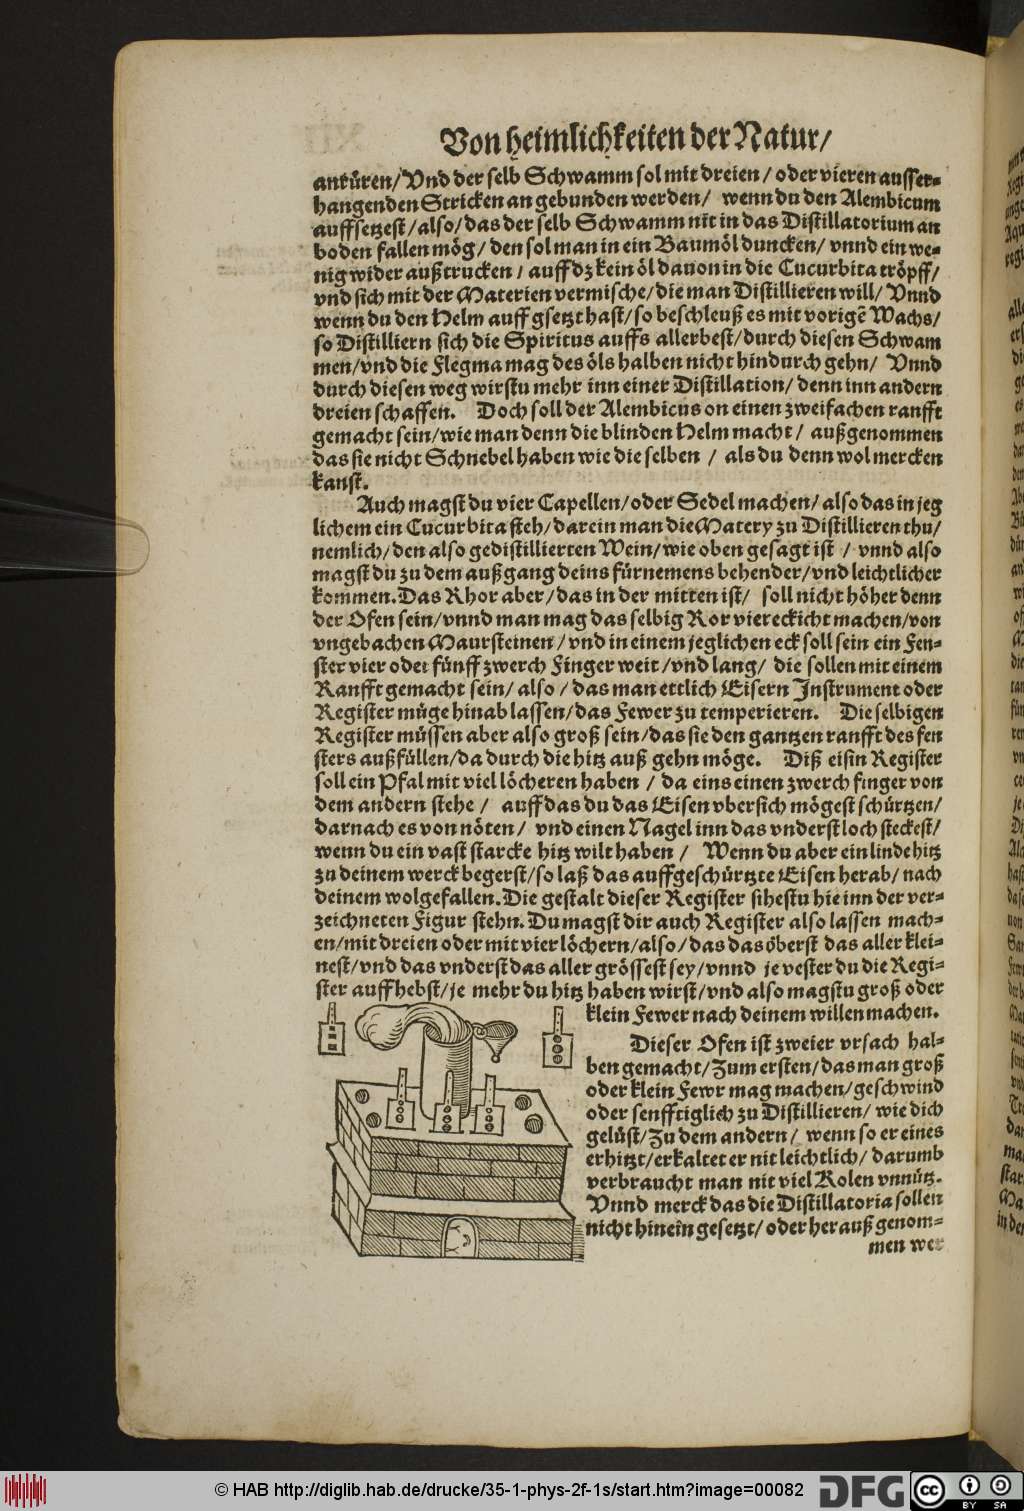 Von heimlichkeiten der Natur/
anrüren/Vnd der selb Schwamm sol mit dreien/ oder vieren ausser⸗
hangenden Stricken an gebunden werden/ wenn du den Alembicum
auffsetzest/also/das der selb Schwamm nit in das Distillatorium an
boden fallen mög/ den sol man in ein Baumöl duncken/ vnnd ein we⸗
nig wider außtrucken/ auff dz kein öl dauon in die Cucurbita tröpff/
vnd sich mit der Materien vermische/die man Distillieren will/ Vnnd
wenn du den Helm auff gsetzt hast/so beschleuß es mit vorigē Wachs/
so Distilliern sich die Spiritus auffs allerbest/durch diesen Schwam
men/vnd die Flegma mag des öls halben nicht hindurch gehn/ Vnnd
durch diesen weg wirstu mehr inn einer Distillation/ denn inn andern
dreien schaffen. Doch soll der Alembicus on einen zweifachen ranfft
gemacht sein/wie man denn die blinden Helm macht/ außgenommen
das sie nicht Schnebel haben wie die selben / als du denn wol mercken
kanst.
Auch magst du vier Capellen/oder Sedel machen/ also das in jeg
lichem ein Cucurbita steh/darein man die Matery zu Distillieren thu/
nemlich/den also gedistillierten Wein/wie oben gesagt ist / vnnd also
magst du zu dem außgang deins fürnemens behender/vnd leichtlicher
kommen. Das Rhor aber/das in der mitten ist/ soll nicht höher denn
der Ofen sein/vnnd man mag das selbig Ror viereckicht machen/von
vngebachen Maursteinen/ vnd in einem jeglichen eck soll sein ein Fen⸗
ster vier oder fünff zwerch Finger weit/vnd lang/ die sollen mit einem
Ranfft gemacht sein/ also/ das man ettlich Eisern Instrument oder
Register müge hinab lassen/das Fewer zu temperieren. Die selbigen
Register müssen aber also groß sein/das sie den gantzen ranfft des fen
sters außfüllen/da durch die hitz auß gehn möge. Diß eisin Register
soll ein Pfal mit viel löcheren haben / da eins einen zwerch finger von
dem andern stehe / auff das du das Eisen vbersich mögest schürtzen/
darnach es von nöten/ vnd einen Nagel inn das vnderst loch steckest/
wenn du ein vast starcke hitz wilt haben / Wenn du aber ein linde hitz
zu deinem werck begerst/so laß das auffgeschürtzte Eisen herab/ nach
deinem wolgefallen. Die gestalt dieser Register sihestu hie inn der ver⸗
zeichneten Figur stehn. Du magst dir auch Register also lassen mach⸗
en/mit dreien oder mit vier löchern/also/das das öberst das aller klei⸗
nest/vnd das vnderst das aller grössest sey/vnnd je vester du die Regi⸗
ster auffhebst/je mehr du hitz haben wirst/vnd also magstu groß oder
klein Fewer nach deinem willen machen.
Dieser Ofen ist zweier vrsach hal⸗
ben gemacht/Zum ersten/das man groß
oder klein Fewr mag machen/geschwind
oder senfftiglich zu Distillieren/ wie dich
gelüst/Zu dem andern/ wenn so er eines
erhitzt/erkaltet er nit leichtlich/ darumb
verbraucht man nit viel Kolen vnnütz.
Vnnd merck das die Distillatoria sollen
nicht hinein gesetzt/ oder herauß genom⸗
men wer
© HAB http://diglib.hab.de/drucke/35-1-phys-2f-1s/start.htm?image=00082
DFG
cc
BY SA